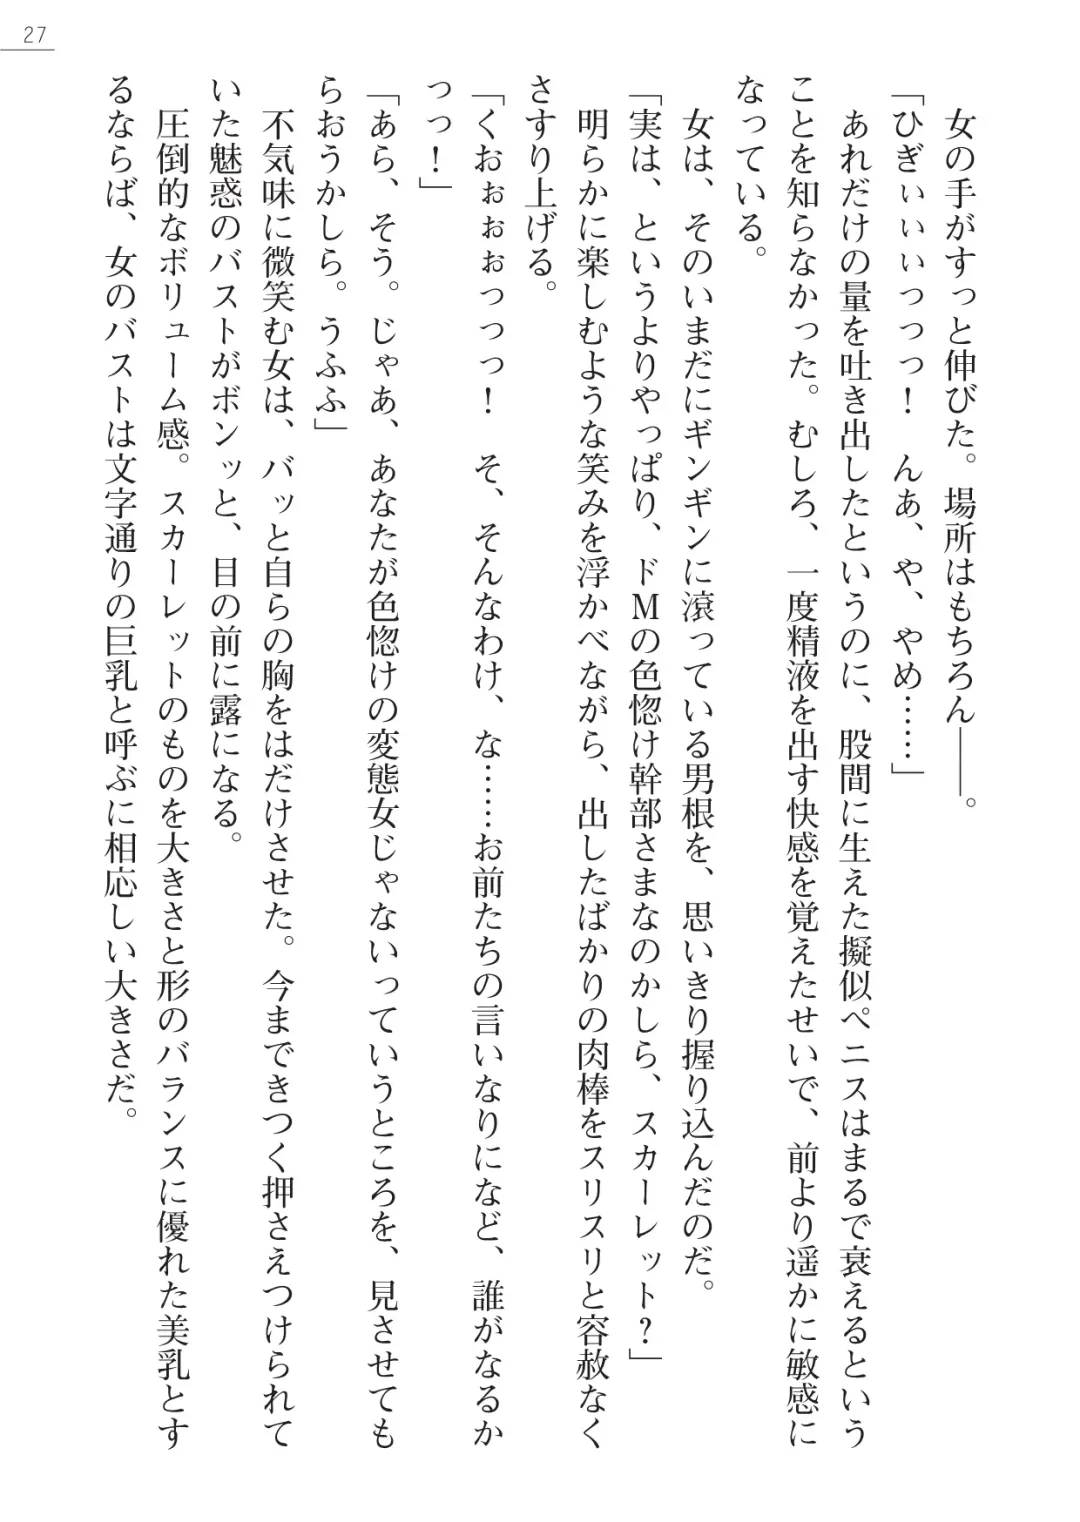 27
　女の手がすっと伸びた。場所はもちろん――。
「ひぎぃぃぃっっっ！　んあ、や、やめ……」
　あれだけの量を吐き出したというのに、股間に生えた擬似ペニスはまるで衰えるという
ことを知らなかった。むしろ、一度精液を出す快感を覚えたせいで、前より遥かに敏感に
なっている。
　女は、そのいまだにギンギンに滾っている男根を、思いきり握り込んだのだ。
「実は、というよりやっぱり、ドＭの色惚け幹部さまなのかしら、スカーレット？」
　明らかに楽しむような笑みを浮かべながら、出したばかりの肉棒をスリスリと容赦なく
さすり上げる。
「くおぉぉぉっっっ！　そ、そんなわけ、な……お前たちの言いなりになど、誰がなるか
っっ！」
「あら、そう。じゃあ、あなたが色惚けの変態女じゃないっていうところを、見させても
らおうかしら。うふふ」
　不気味に微笑む女は、バッと自らの胸をはだけさせた。今まできつく押さえつけられて
いた魅惑のバストがボンッと、目の前に露になる。
　圧倒的なボリューム感。スカーレットのものを大きさと形のバランスに優れた美乳とす
るならば、女のバストは文字通りの巨乳と呼ぶに相応しい大きさだ。